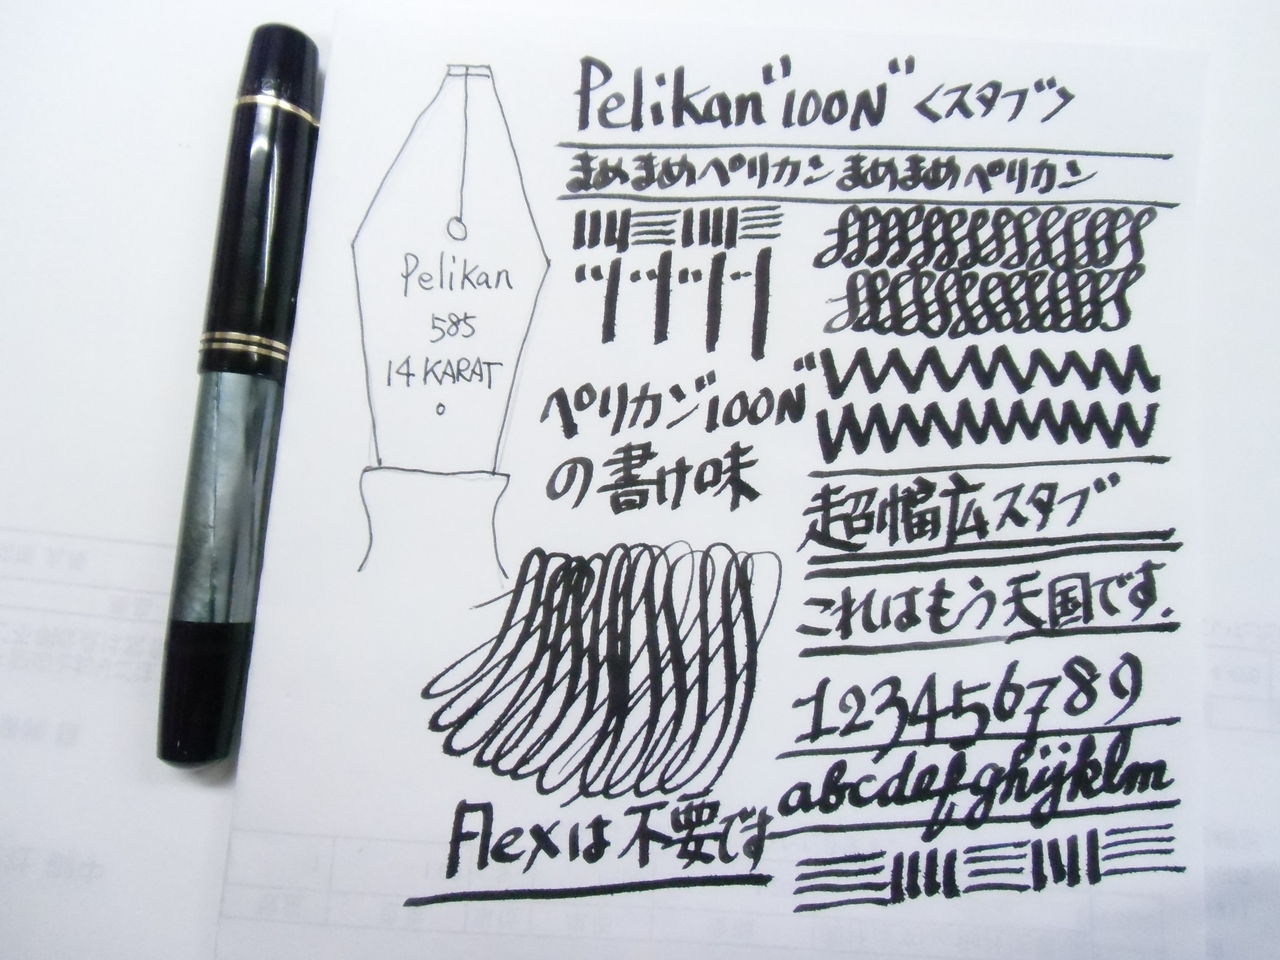 Pelikan "100N" <スタブ>
まめまめペリカンまめまめペリカン
Pelikan
585
14 KARAT
ペリカン"100N"
の書け味
超幅広スタブ
これはもう天国です.
123456789
abcdefghijklm
Flexは不要です